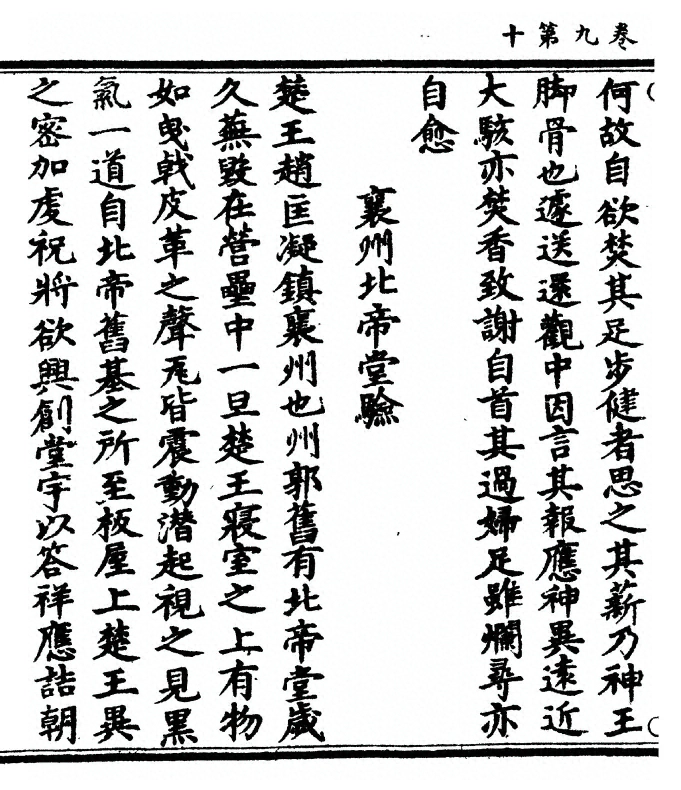 卷九第十
何故自欲焚其足步健者思之其薪乃神王
脚骨也遽送還觀中因言其報應神異遠近
大駭亦焚香致謝自首其過婦足雖爛尋亦
自愈
襄州北帝堂驗
楚王趙匡凝鎮襄州也州郭舊有北帝堂歲
久蕪毀在營壘中一旦楚王寢室之上有物
如曳戟皮革之聲瓦皆震動潛起視之見黑
氣一道自北帝舊基之所至板屋上楚王異
之密加虔祝將欲興創堂宇以答祥應詰朝